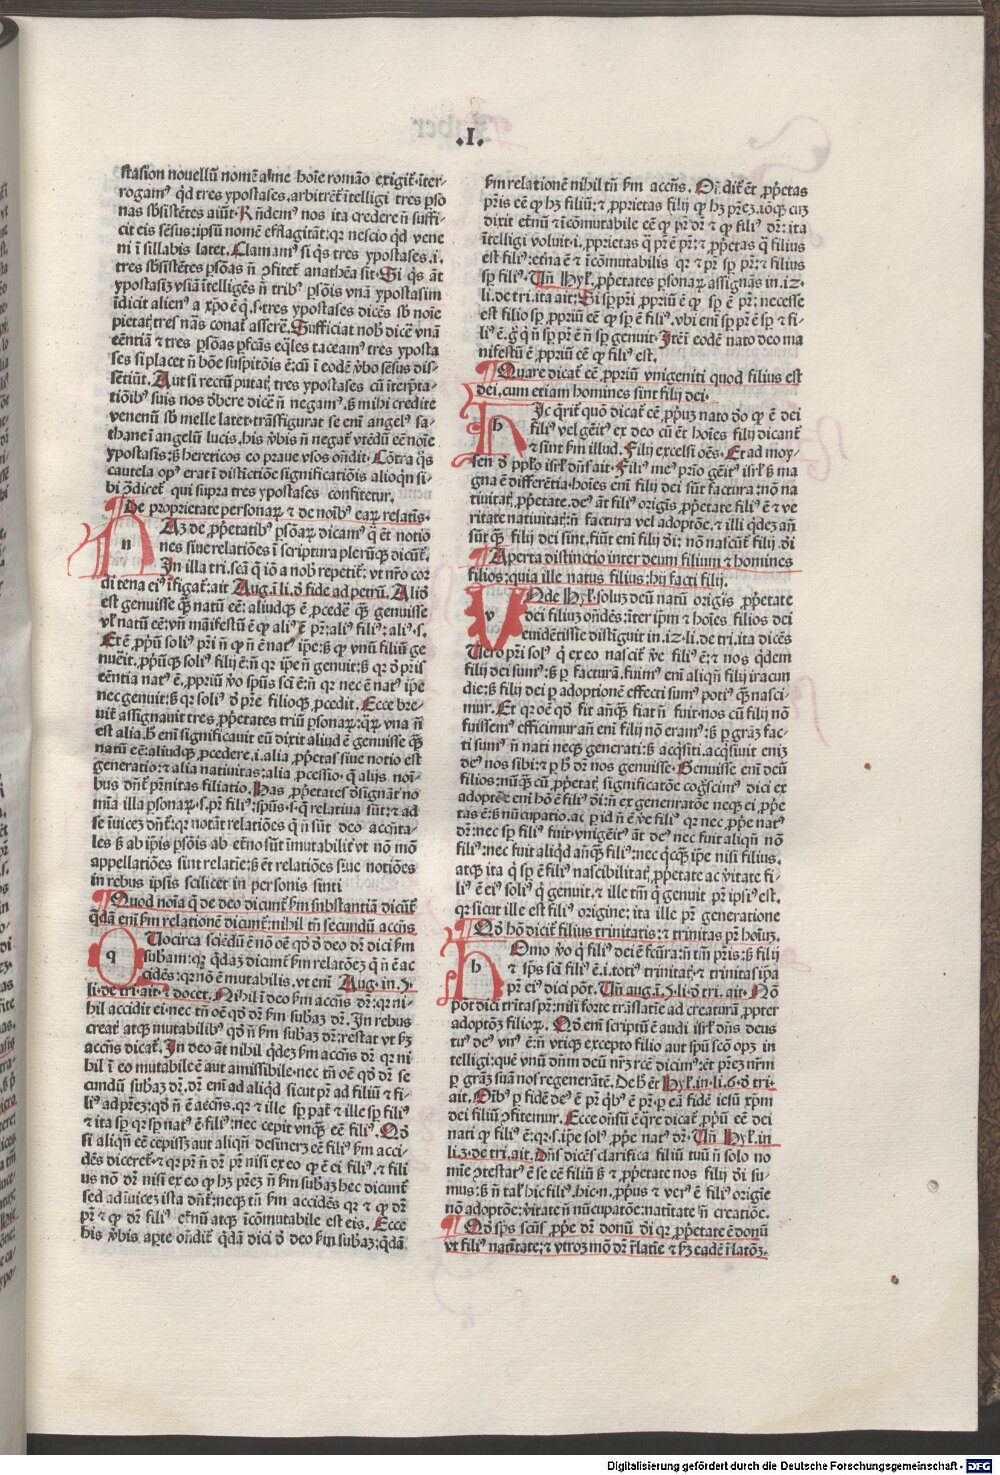 .I.
stasion nouellū nomē a me hoīe romāo exigit̄. īter-
rogamꝰ qͥd tres ypostases. arbitrēt̄ ītelligi tres ꝑso
nas sbſistētes aiūt. Rn̄demꝰ nos ita credere n̄ suffi-
cit eis sēsus: ipsū nomē efflagitāt: qꝛ nescio qͥd vene
ni ī sillabis latet. Clamamꝰ si qͥs tres ypostases. i.
tres sbsistētes ꝑsōas n̄ ꝯfitet̄ anathēa sit. Si qͥs āt
ypostasiz vsiā ītelligēs n̄ tribꝰ ꝑsōis vnā ypostasim
pietat̄: tres nās conat̄ asserē. Sufficiat nob̄ dicē vnā
eēntiā ⁊ tres ꝑsōas ꝑfcās eq̄les taceamꝰ tres yposta
ses si placet n̄ bōe suspitōis ē: cū ī eodē v̄bo sēsus dis-
sētiūt. Aut si rectū putat̄ tres ypostases cū īterp̄ta-
tiōibꝰ suis nos d̄bere dicē n̄ negamꝰ. sꝫ mihi credite
venenū sb melle latet. trāsfigurat se eni angelꝰ sa-
thane ī angelū lucis. his v̄bis n̄ negat̄ vtēdū eē noīe
ypostasis: sꝫ hereticos eo praue vsos on̄dit. Cōtra qͥs
cautela opꝰ erat ī distictiōe significatiōis alioqͥn si-
bi ꝯdicēt̄ qui supra tres ypostases confitetur.
De proprietate personaꝝ ⁊ de noībꝰ eaꝝ relatis.
n Az de ꝓp̄etatibꝰ ꝑsōaꝝ dicamꝰ q̄ et notio
nes siue relatiōes ī scriptura plerūqꝫ dicūt̄.
In illa tri. seā q̄ iō a nob̄ repetit̄: vt nr̄o cor
di tena eiꝰ īfigat̄: ait Aug. ī li. d̄ fide ad petrū. Aliō
est genuisse qͣꝫ natū eē: aliudqꝫ ē ꝓcedē qͣꝫ genuisse
vꝉ natū eē: vn̄ māifestū ē qͥ aliꝰ ē pr̄: aliꝰ filiꝰ: aliꝰ .s.
Et ē ꝓpͥū soli pr̄i n̄ qͥ n̄ ē natꝰ ip̄e: sꝫ qͥ vnū filiū ge
nuēit. ꝓpͥūqꝫ soliꝰ filij ē: n̄ qꝛ ip̄e n̄ genuit: sꝫ qꝛ d̄ pr̄is
eēntia natꝰ ē. ꝓpriū v̄o spūs sci ē: n̄ qꝛ nec ē natꝰ ip̄e
nec genuit: sꝫ qꝛ soliꝰ d̄ pr̄e filioqꝫ ꝓcedit. Ecce bre-
uit̄ assignauit tres ꝓp̄etates triū ꝑsonaꝝ: qͣꝝ vna n̄
est alia. h̄ eni significauit eū dixit aliud ē genuisse qͣꝫ
natū eē: aliudqꝫ ꝓcedere. i. alia ꝓp̄etas siue notio est
generatio: ⁊ alia natiuitas: alia ꝓcessio. q̄ alijs noī-
bus dn̄t̄ pr̄nitas filiatio. Has ꝓp̄etates d̄signāt no
mīa illa ꝑsonaꝝ. s. pr̄ filiꝰ: spūs. s. q̄ relatiua sūt: ⁊ ad
se īuicē dn̄t̄: qꝛ notāt relatiōes q̄ n̄ sūt deo accn̄ta-
les sꝫ ab īp̄is ꝑsōis ab et̄no sūt īmutabilit̄ vt nō mō
appellatiōes sint relatīe: sꝫ ēt relatiōes siue notiōes
in rebus ipsis scilicet in personis sinti
Quod noīa q̄ de deo dicunt̄ ẜm substantiā dicūt̄
q̄dā eni ẜm relationē dicunt̄: nihil tn̄ secundū accn̄s
q Uocirca sciēdū ē nō oē qd̄ d̄ deo dr̄ dici ẜm
subam: qꝛ q̄daz dicunt̄ ẜm relatōez q̄ n̄ ē ac
cidēs: qꝛ nō ē mutabilis. vt eni Aug. in. 5.
li. de tri. ait. ⁊ docet. Nihil ī deo ẜm accn̄s dr̄: qꝛ ni-
hil accidit ei: nec tn̄ oē qd̄ dr̄ ẜm subaz dr̄. In rebus
creat̄ atqꝫ mutabilibꝰ qd̄ n̄ ẜm subaz dr̄: restat vt ẜꝫ
accn̄s dicat̄. In deo āt nihil qͥdez ẜm accn̄s dr̄ qꝛ ni
hil ī eo mutabile ē aut amissibile. nec tn̄ oē qd̄ dr̄ se
cundū subaz dr̄. dr̄ eni ad aliqͥd sicut pr̄ ad filiū ⁊ fi-
liꝰ ad pr̄ez: qd̄ n̄ ē accn̄s. qꝛ ⁊ ille sp̄ pat̄ ⁊ ille sp̄ filiꝰ
⁊ ita sp̄ qꝛ sp̄ natꝰ ē filiꝰ: nec cepit vnqͣꝫ eē filiꝰ. Qd̄
si aliqn̄ eē cepisset aut aliqn̄ desinerꝫ eē filiꝰ ẜm acci-
dēs diceret̄. ⁊ qꝛ pr̄ n̄ dr̄ pr̄ nisi ex eo qͥ ē ei filiꝰ. ⁊ fili
us nō dr̄ nisi ex eo qͥ hꝫ pr̄ez n̄ ẜm subaz hec dicunt̄
sed ad īuicez ista dn̄t̄: neqꝫ tn̄ ẜm accidēs qꝛ ⁊ qͥ dr̄
pr̄ ⁊ qͥ dr̄ filiꝰ et̄nū atqꝫ īcōmutabile est eis. Ecce
his v̄bis aꝑte on̄dit̄ q̄dā dici d̄ deo ẜm subaz: q̄dā
ẜm relationē nihil tn̄ ẜm accn̄s. Or̄. dik̄ ēt ꝓp̄etas
pr̄is eē qͥ hꝫ filiū: ⁊ ꝓprietas filij qͥ hꝫ pr̄ez. iōqꝫ cuz
dixit et̄nū ⁊ īcōmutabile eē qͥ pr̄ dr̄ ⁊ qͥ filiꝰ dr̄: ita
ītelligi voluit. i. ꝓprietas q̄ pr̄ ē pr̄: ⁊ ꝓp̄etas q̄ filius
est filiꝰ: et̄na ē ⁊ īcōmutabilis qꝛ ⁊ pr̄ sp̄ pr̄: ⁊ filius
sp̄ filiꝰ. Un̄ Hyꝉ. ꝓp̄etates ꝑsonaꝝ assignās in. 12.
li. de tri. ita ait: Si sp̄ pr̄i ꝓpriū ē qͥ sp̄ ē pr̄: necesse
est filio sp̄ ꝓpriū eē qͥ sp̄ ē filiꝰ. vbi eni sp̄ pr̄ ē sp̄ ⁊ fi-
liꝰ ē. gͥ qͥ n̄ sp̄ pr̄ ē n̄ sp̄ genuit. Itē ī eodē nato deo ma
nifestū ē ꝓpriū eē qͥ filiꝰ est.
Quare dicat̄ eē ꝓpriū vnigeniti quod filius est
dei. cum etiam homines sint filij dei.
h Ic qͥrit̄ quō dicat̄ eē ꝓpͥuz nato d̄o qͥ ē dei
filiꝰ vel gēitꝰ ex deo cū ēt hoīes filij dicant̄
⁊ sint ẜm illud. Filij excelsi oēs. Et ad moy-
sen d̄ pp̄ło isrl̄ dn̄s ait. Filiꝰ meꝰ pr̄io gēitꝰ isrl̄ sꝫ ma
gna ē differētia. hoīes eni filij dei sūt factura: nō na
tiuitat̄ ꝓp̄etate. deꝰ āt filiꝰ origīs ꝓprietate filiꝰ ē ⁊ ve
ritate natiuitat̄: n̄ factura vel adoptōe. ⁊ illi qͥdez an̄
sūt qͣꝫ filij dei sint. fiūt eni filij d̄i: nō nascūt̄ filij. d̄i
Aperta distinctio inter deum filium ⁊ homines
filios: quia ille natus filius: hij facti filij.
v Nde Hyꝉ. soluz deū natū origīs ꝓp̄etate
dei filiuz on̄dēs: īter ip̄m ⁊ hoīes filios dei
euidētissīe distīguit in. 12. li. de tri. ita dicēs
Uero pr̄i solꝰ q̄ ex eo nascit̄ v̄e filiꝰ ē: ⁊ nos qͥdem
filij dei sumꝰ: sꝫ ꝑ facturā. fuimꝰ eni aliqn̄ filij iracun
die: sꝫ filij dei ꝑ adoptionē effecti sumꝰ potiꝰ qͣꝫ nasci-
mur. Et qꝛ oē qd̄ fit an̄qͣꝫ fiat n̄ fuit. nos cū filij nō
fuissemꝰ efficimur. an̄ eni filij nō eramꝰ: sꝫ ꝑ gr̄az fac-
ti sumꝰ n̄ nati neqꝫ generati: sꝫ acqͥsiti. acqͥsiuit eniz
deꝰ nos sibi: ⁊ ꝑ h̄ dr̄ nos genuisse. Genuisse eni deū
filios: nūqͣꝫ cū ꝓp̄etat̄ significatōe cogͦscimꝰ dici ex
adoptōe eni hō ē filiꝰ d̄i: n̄ ex generatōe neqꝫ ei ꝓp̄e
tas ē: sꝫ nūcupatio. ac ꝑ id n̄ ē v̄e filiꝰ qꝛ nec ꝓp̄e natꝰ
dr̄: nec sp̄ filiꝰ fuit. vnigēitꝰ āt deꝰ nec fuit aliqn̄ nō
filiꝰ: nec fuit aliqͥd an̄qͣꝫ filiꝰ: nec qͥcqͣꝫ ip̄e nisi filius.
atqꝫ ita q̄ sp̄ ē filiꝰ nascibilitat̄ ꝓp̄etate ac v̄itate fi-
liꝰ ē eiꝰ soliꝰ q̄ genuit. ⁊ ille tm̄ q̄ genuit pr̄ ipsiꝰ est.
qꝛ sicut ille est filiꝰ origine: ita ille pr̄ generatione
Qd̄ hō dicit̄ filius trinitatis: ⁊ trinitas pr̄ hoīuz.
h Omo v̄o q̄ filiꝰ dei ē fcūra: n̄ tm̄ pr̄is: sꝫ filij
⁊ sp̄s sci filiꝰ ē. i. totiꝰ trinitat̄. ⁊ trinitas ip̄a
pr̄ eiꝰ dici pōt. Un̄ aug. ī. 5. li. d̄ tri. ait. Nō
pōt dici trītas pr̄: nisi forte trāslatīe ad creaturā ꝓpter
adoptōz filioꝝ. Qd̄ eni scriptū ē audi isrl̄ dn̄s deus
tuꝰ deꝰ vnꝰ ē: n̄ vtiqꝫ excepto filio aut spū scō opꝫ in
telligi: quē vnū dn̄m deū nr̄ꝫ rcē dicimꝰ: ēt pr̄ez nr̄m
ꝑ gr̄az suā nos regenerātē. De h̄ ēt Hyꝉ. in. li. 6. d̄ tri.
ait. Oībꝰ ꝑ fidē deꝰ ē pr̄ qͥbꝰ ē pr̄. ꝑ eā fidē iesū xp̄m
dei filiū ꝯfitemur. Ecce on̄sū ē qͣre dicat̄ ꝓpͥū eē dei
nati qͥ filiꝰ ē: qꝛ. s. ip̄e solꝰ. ꝓp̄e natꝰ dr̄. Un̄ Hyꝉ. in
li. 3. de tri. ait. Dn̄s dicēs clarifica filiū tuū n̄ solo no
mīe ꝯtestatꝰ ē se eē filiū sꝫ ⁊ ꝓp̄etate nos filij d̄i su-
mus: sꝫ n̄ tal̄ hic filiꝰ. hic. n. ꝓpͥus ⁊ verꝰ ē filiꝰ origīe
nō adoptōe: v̄itate n̄ nūcupatōe: natītate n̄ creatiōe.
Qd̄ sp̄s scūs ꝓp̄e dr̄ donū d̄i qꝛ ꝓp̄etate ē donū
vt filiꝰ natītate: ⁊ vtroqꝫ mō dr̄ r̄latīe ⁊ ẜꝫ eādē īlatōꝫ.
Digitalisierung gefördert durch die Deutsche Forschungsgemeinschaft - DFG